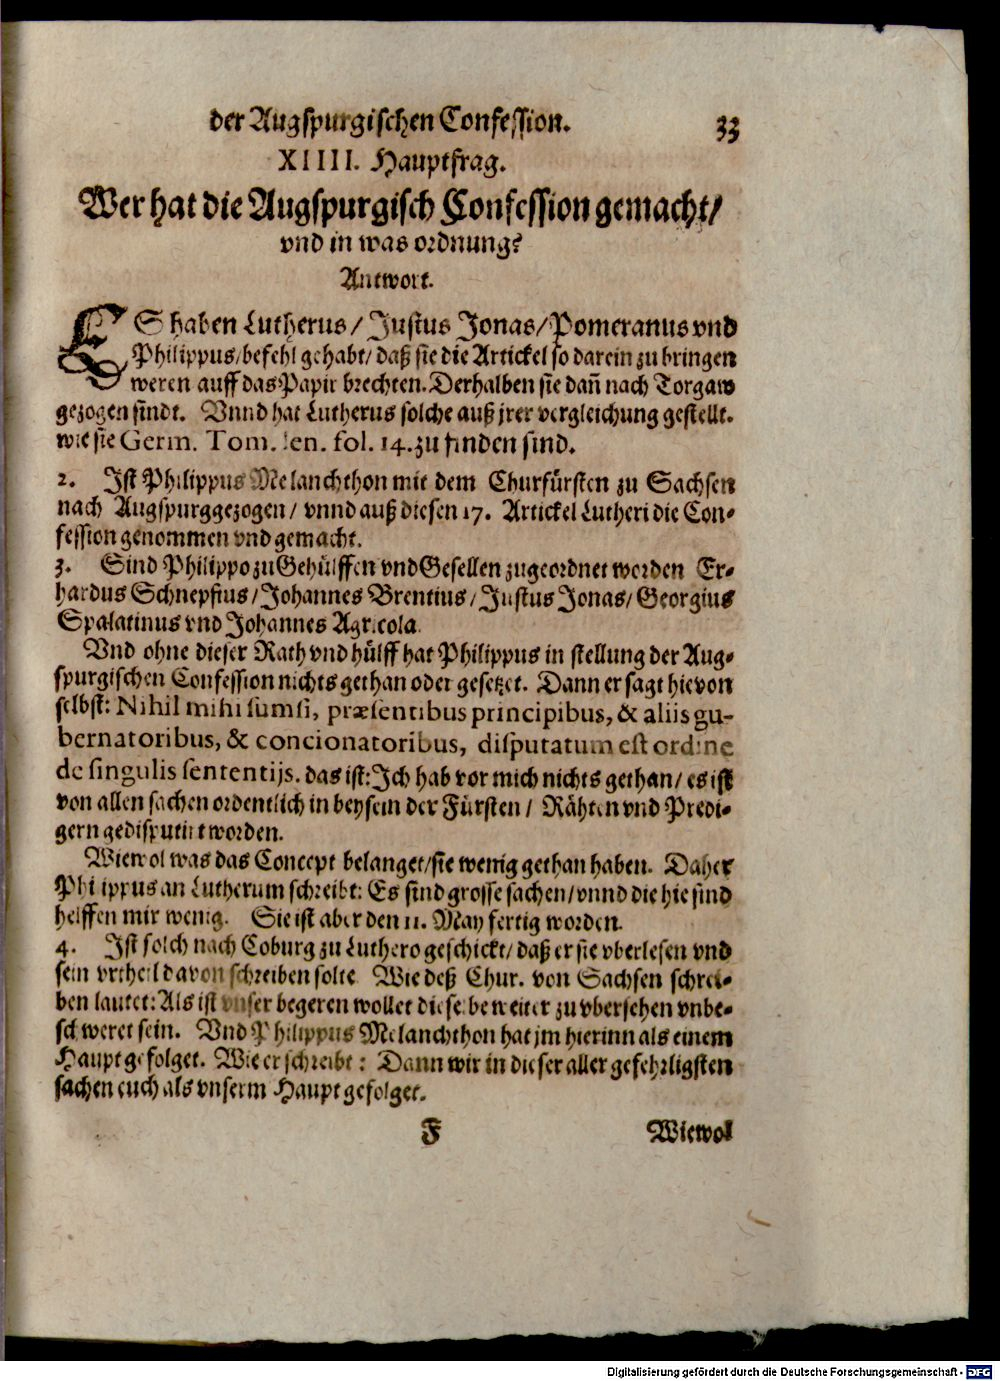 der Augspurgischen Confession. 33
XIIII. Hauptfrag.
Wer hat die Augspurgisch Confession gemacht/
vnd in was ordnung?
Antwort.
ES haben Lutherus/ Justus Jonas/ Pomeranus vnd
Philippus/ befehl gehabt/ daß sie die Artickel so darein zu bringen
weren auff das Papir brechten. Derhalben sie dañ nach Torgaw
gezogen sindt. Vnnd hat Lutherus solche auß jrer vergleichung gestellt.
wie sie Germ. Tom. Jen. fol. 14. zu finden sind.
2. Ist Philippus Melanchthon mit dem Churfürsten zu Sachsen
nach Augspurg gezogen/ vnnd auß diesen 17. Artickel Lutheri die Con-
fession genommen vnd gemacht.
3. Sind Philippo zu Gehülffen vnd Gesellen zugeordnet worden Er-
hardus Schnepfius/ Johannes Brentius/ Justus Jonas/ Georgius
Spalatinus vnd Johannes Agricola.
Vnd ohne dieser Rath vnd hülff hat Philippus in stellung der Aug-
spurgischen Confession nichts gethan oder gesetzet. Dann er sagt hievon
selbst: Nihil mihi sumsi, præsentibus principibus, & aliis gu-
bernatoribus, & concionatoribus, disputatum est ordine
de singulis sententijs. das ist: Ich hab vor mich nichts gethan/ es ist
von allen sachen ordentlich in beysein der Fürsten/ Rähten vnd Predi-
gern gedisputirt worden.
Wiewol was das Concept belanget/ sie wenig gethan haben. Daher
Philippus an Lutherum schreibt: Es sind grosse sachen/ vnnd die hie sind
helffen mir wenig. Sie ist aber den 11. May fertig worden.
4. Ist solch nach Coburg zu Luthero geschickt/ daß er sie vberlesen vnd
sein vrtheil davon schreiben solte. Wie deß Chur. von Sachsen schrei-
ben lautet: Als ist vnser begeren wollet dieselbe weiter zu vbersehen vnbe-
schweret sein. Vnd Philippus Melanchthon hat jm hierinn als einem
Haupt gefolget. Wie er schreibt: Dann wir in dieser aller gefehrligsten
sachen euch als vnserm Haupt gefolget.
F Wiewol
Digitalisierung gefördert durch die Deutsche Forschungsgemeinschaft - DFG